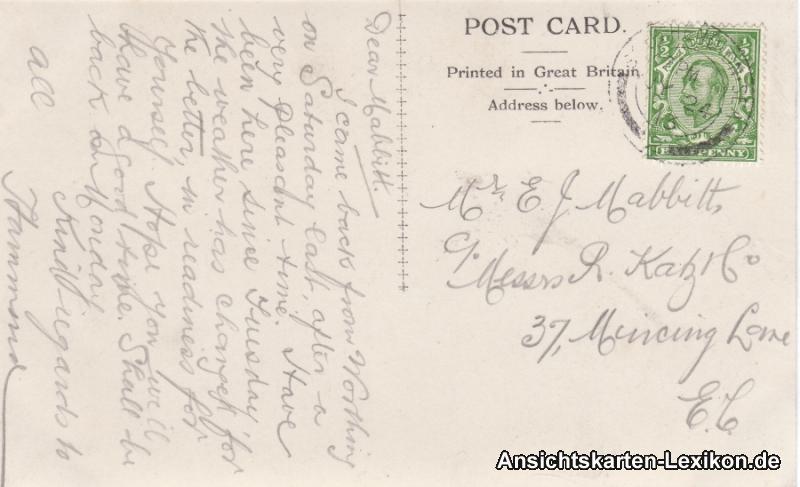 Dear Mabbitt.
I came back from Worthing
on Saturday last, after a
very pleasant time. Have
been here since Tuesday
the weather has changed for
the better, in readiness for
Yourself. Hope you will
have a good time. Shall be
back on Monday
Kind regards to
all
Hammond
POST CARD.
Printed in Great Britain.
Address below.
½ ½
HALFPENNY
24
Mr. E J Mabbitt
c/o Messrs R. Katz & Co
37, Mincing Lane
E.C.
Ansichtskarten-Lexikon.de